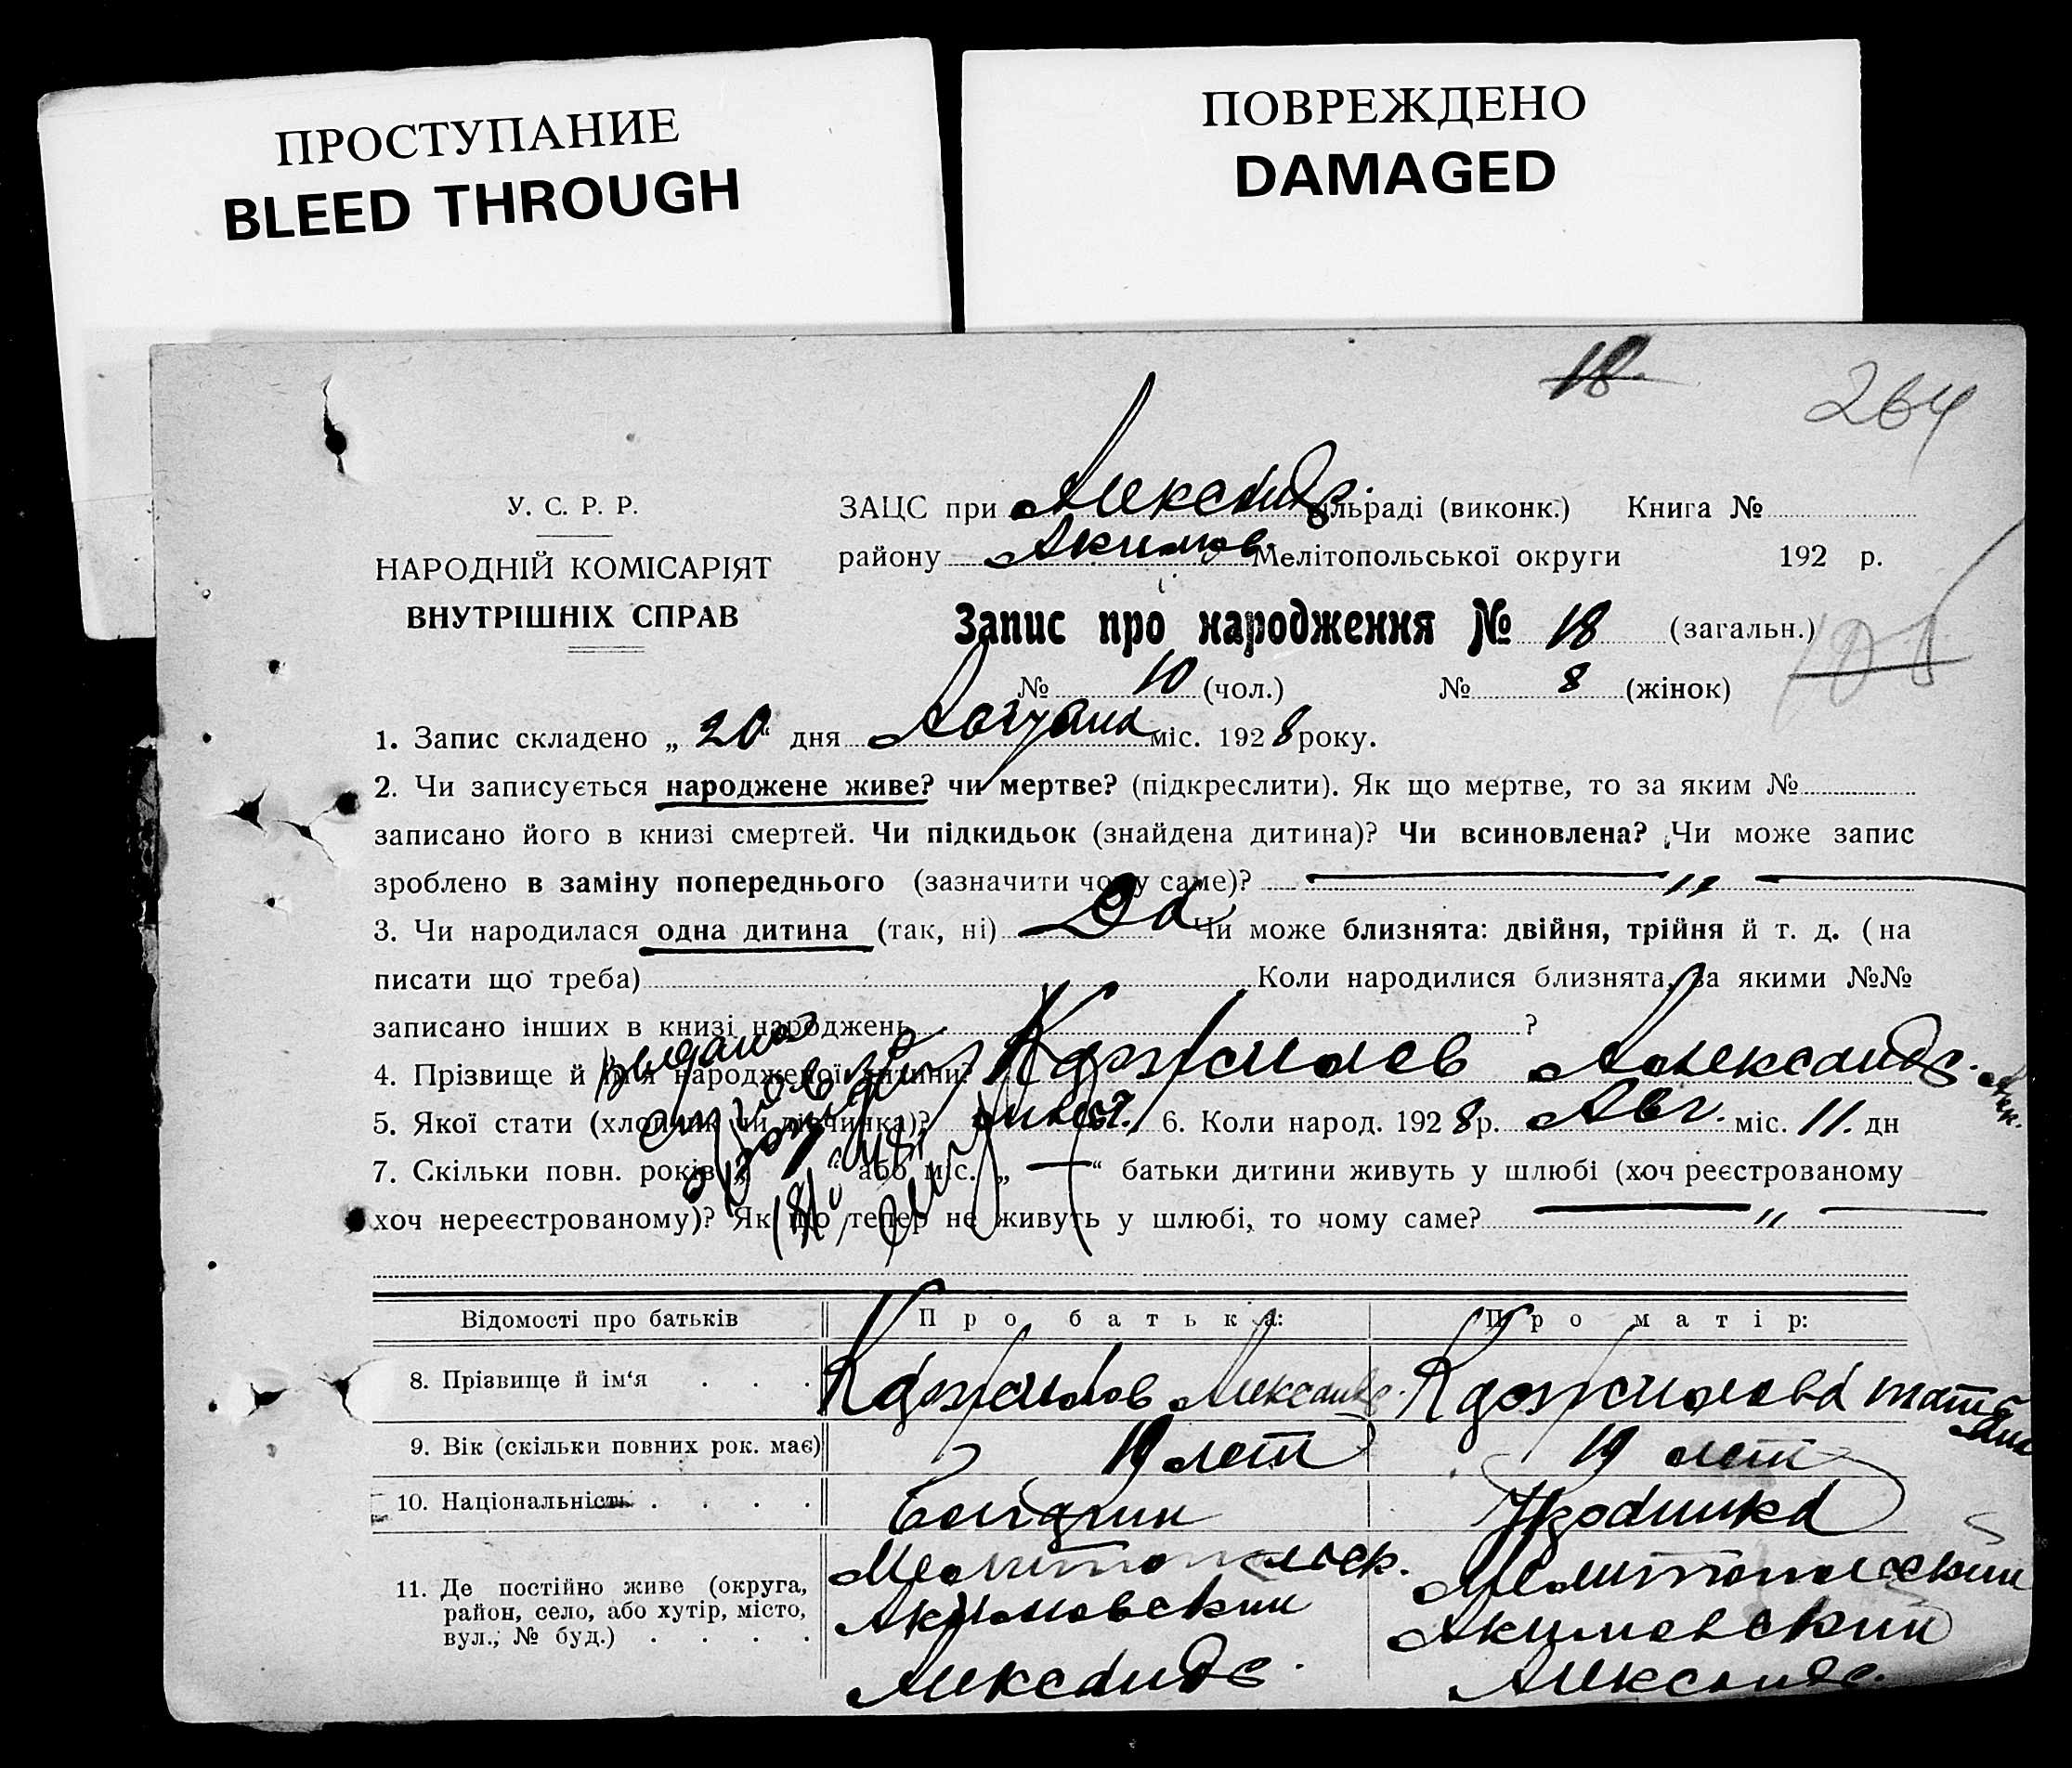 ПРОСТУПАНИЕ
BLEED THROUGH
ПОВРЕЖДЕНО
DAMAGED
18.
264
У. С. Р. Р.
НАРОДНІЙ КОМІСАРІЯТ
ВНУТРІШНІХ СПРАВ
ЗАЦС при Александр. сільраді (виконк.) Книга №
району Акимов. Мелітопольської округи 192 р.
Запис про народження № 18 (загальн.)
№ 10 (чол.) № 8 (жінок)
1. Запис складено „ 20 “ дня Августа міс. 1928 року.
2. Чи записується народжене живе? чи мертве? (підкреслити). Як що мертве, то за яким №
записано його в книзі смертей. Чи підкидьок (знайдена дитина)? Чи всиновлена? Чи може запис
зроблено в заміну попереднього (зазначити чому саме)? — " —
3. Чи народилася одна дитина (так, ні) Да Чи може близнята: двійня, трійня й т. д. (на
писати що треба) Коли народилися близнята, за якими №№
записано інших в книзі народжень ?
4. Прізвище й ім'я народженої дитини? Александр.
5. Якої стати (хлопчик чи дівчинка)? 6. Коли народ. 1928 р. Авг. міс. 11. дн
7. Скільки повн. років „ “ або міс. „ — “ батьки дитини живуть у шлюбі (хоч реєстрованому
хоч нереєстрованому)? Як що тепер не живуть у шлюбі, то чому саме? — " —
Відомості про батьків Про батька: Про матір:
8. Прізвище й ім'я . . . Александр.
9. Вік (скільки повних рок. має) 19 лет 19 лет
10. Національність . . . . Болгарин
11. Де постійно живе (округа, Мелитопольск. Мелитопольский
район, село, або хутір, місто, Акимовский Акимовский
вул., № буд.) . . . . Александр. Александр.